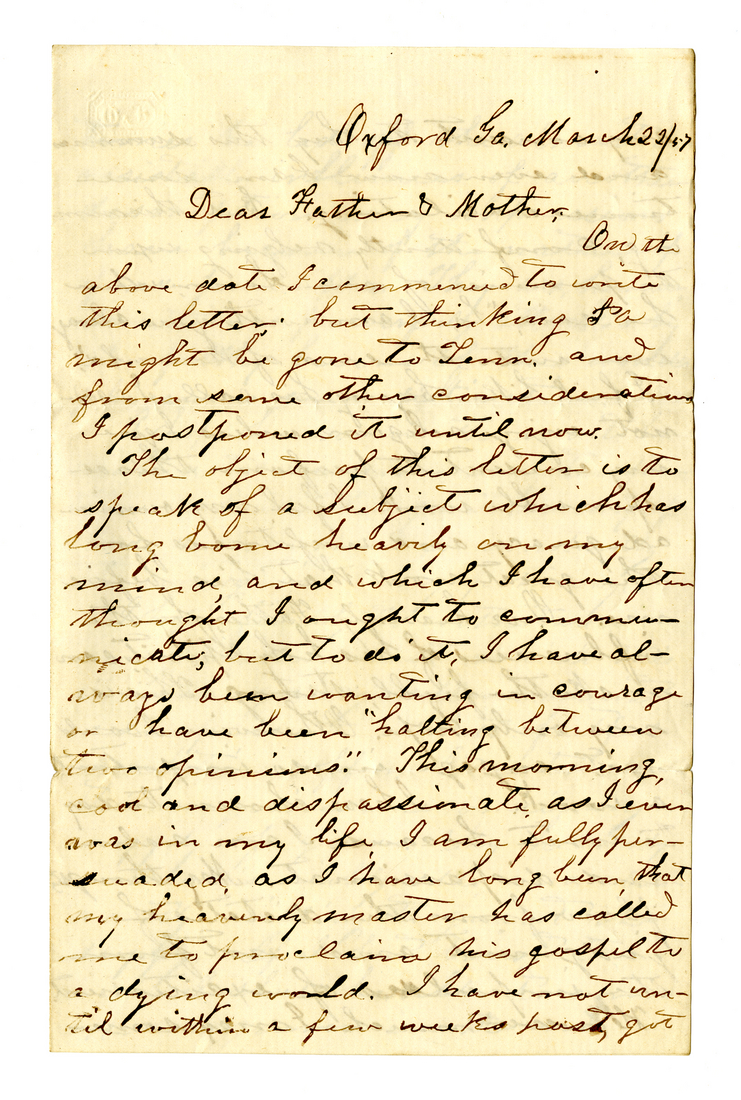 Oxford Ga. March 22/57
Dear Father & Mother,
On the
above date I commenced to write
this letter; but thinking Pa
might be gone to Tenn. and
from some other considerations
I postponed it until now.
The object of this letter is to
speak of a subject which has
long borne heavily on my
mind, and which I have often
thought I ought to commu-
nicate; but to do it, I have al-
ways been wanting in courage
or have been "halting between
two opinions." This morning,
cool and dispassionate as I ever
was in my life, I am fully per-
suaded, as I have long been, that
my heavenly master has called
me to proclaim his gospel to
a dying world. I have not un-
til within a few weeks past, got